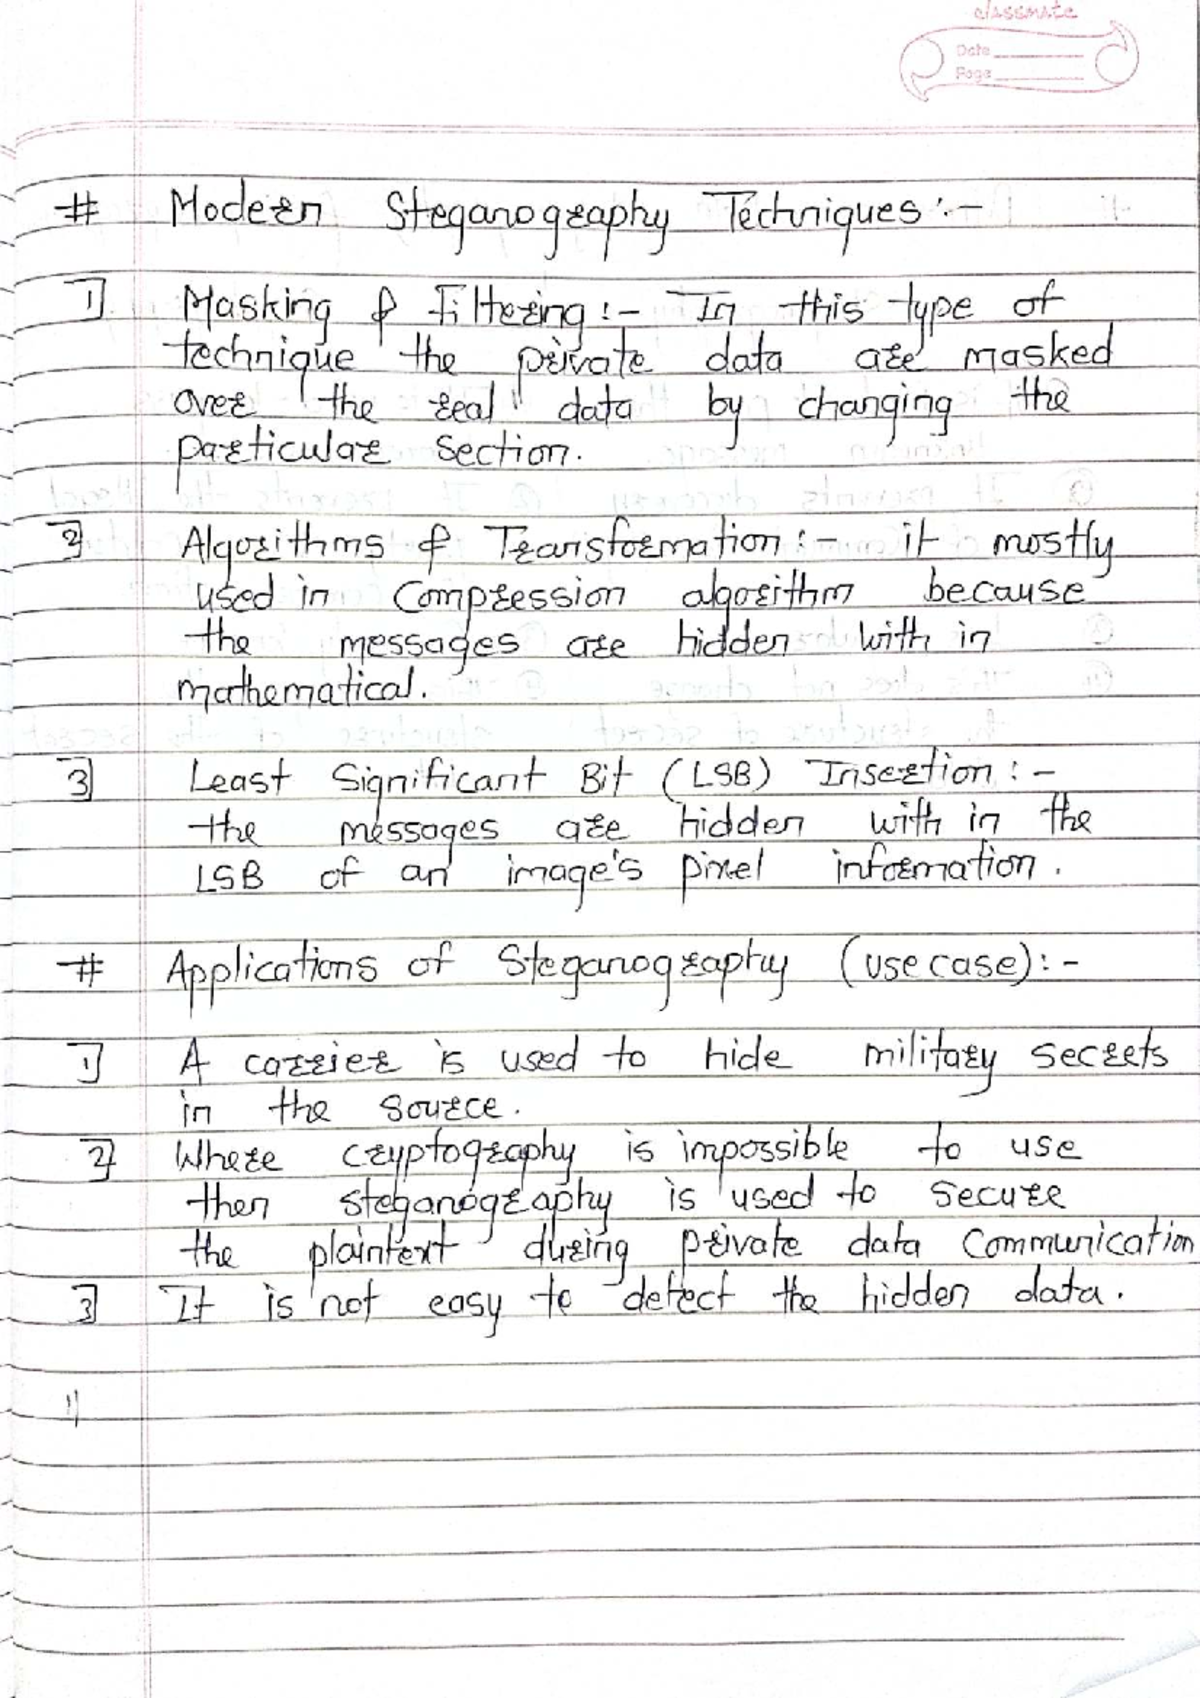 classmate
Date
Page
# Modern Steganography Techniques :-
1] Masking & Filtering :- In this type of
technique the private data are masked
over the real data by changing the
particular section.
2] Algorithms & Transformation :- it mostly
used in Compression algorithm because
the messages are hidden with in
mathematical.
3] Least Significant Bit (LSB) Insertion :-
the messages are hidden with in the
LSB of an image's pixel information.
# Applications of Steganography (use case) :-
1] A carrier is used to hide military secrets
in the source.
2] Where cryptography is impossible to use
then steganography is used to secure
the plaintext during private data Communication
3] It is not easy to detect the hidden data.